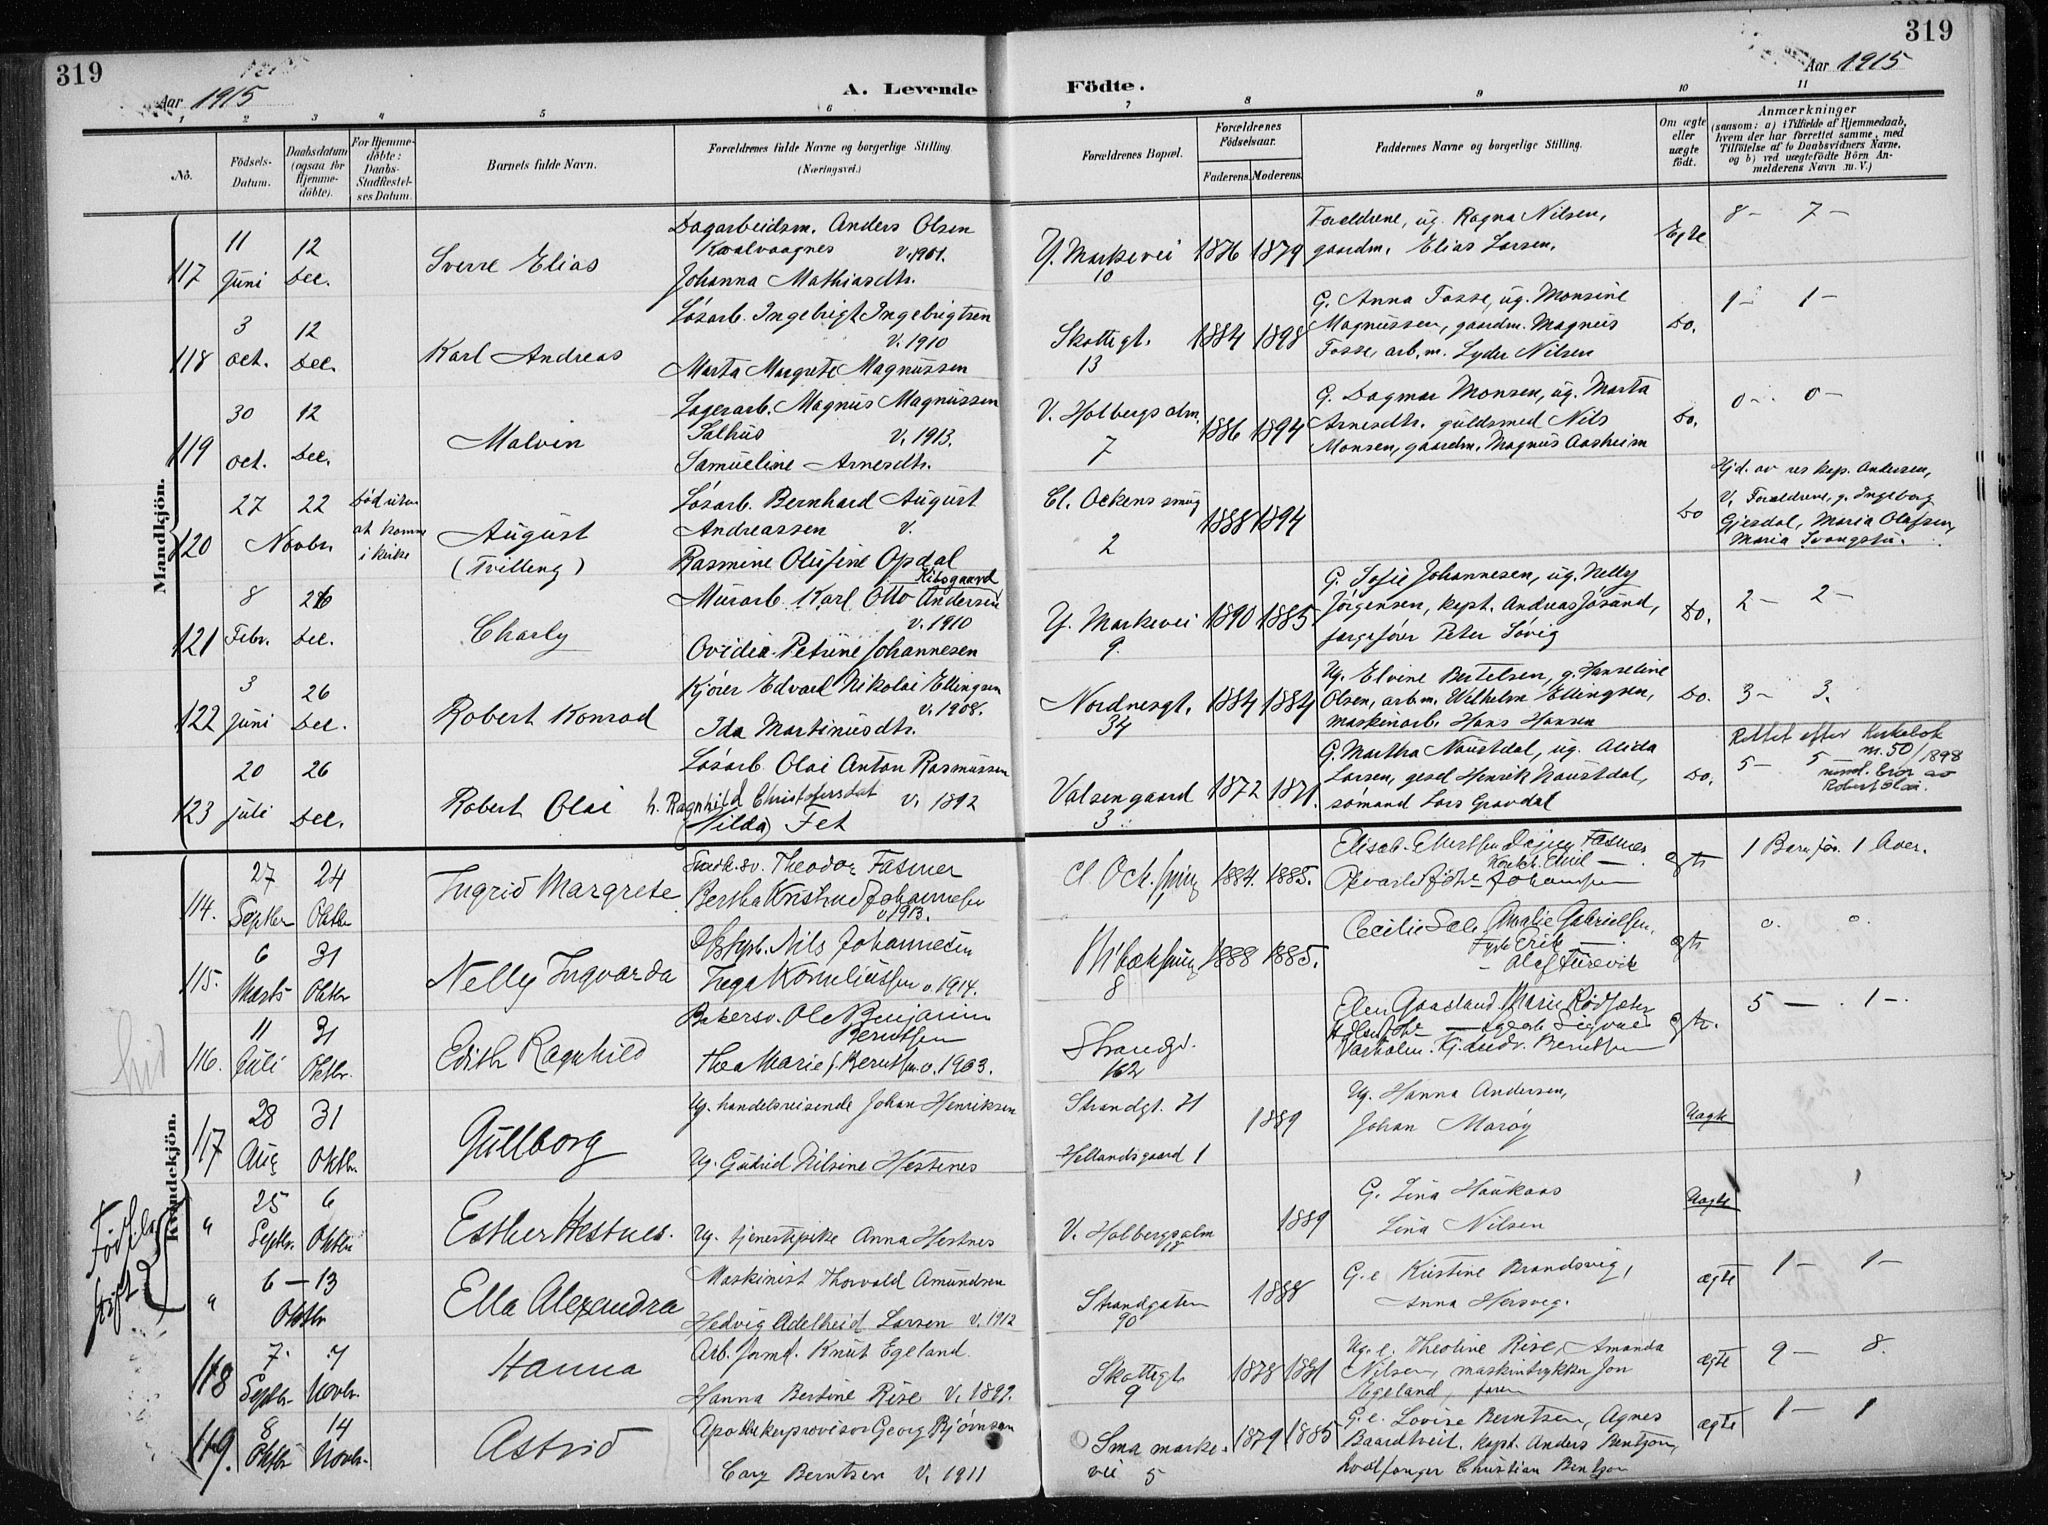 319
319
Aar 1915
A. Levende
Födte.
Aar 1915
1 2 3 4 5 6 7 8 9 10 11
No.
Födsels-Datum.
Daabsdatum (ogsaa for Hjemme-döbte).
For Hjemme-döbte: Daabs-Stadfæstel-ses Datum.
Barnets fulde Navn.
Forældrenes fulde Navne og borgerlige Stilling
(Næringsvei.)
Forældrenes Bopæl.
Forældrenes Födselsaar.
Faderens. Moderens.
Faddernes Navne og borgerlige Stilling.
Om ægte eller uægte födt.
Anmærkninger
(saasom: a) i Tilfælde af Hjemmedaab, hvem der har forrettet samme, med Tilföielse af to Daabsvidners Navne, og b) ved uægtefödte Börn An-melderens Navn m. V.)
Mandkjön.
117
11 Juni
12 Dec.
Sverre Elias
Dagarbeidsm. Anders Olsen
Kvalvaagnes V. 1901.
Johanna Mathiasdtr.
Y. Markevei
10
1876 1879
Forældrene, ug. Ragna Nilsen,
gaardm. Elias Larsen.
Egte
8 - 7 -
118
3 Oct.
12 Dec.
Karl Andreas
Løsarb. Ingebrigt Ingebrigtsen
V. 1910
Marta Margrete Magnussen
Skottegt.
13
1884 1898
G. Anna Fosse, ug. Monsine
Magnussen, gaardm. Magnus
Fosse, arb.m. Lyder Nilsen
Do.
1 - 1 -
119
30 Oct.
12 Dec.
Malvin
Lagerarb. Magnus Magnussen
Salhus V. 1913.
Samueline Arnesdtr.
V. Holbergs alm.
7
1886 1894
G. Dagmar Monsen, ug. Marta
Arnesdtr. guldsmed Nils
Monsen, gaardm. Magnus Aasheim
Do.
0 - 0 -
120
27 22
Novbr.
Død uten
at komme
i kirke
August
(Tvilling)
Løsarb. Bernhard August
Andreassen V.
Rasmine Olufine Opdal
Cl. Ockens smug
2
1888 1894
Do
Hjd. av res kap. Andersen,
V. Forældrene, g. Ingeborg
Gjesdal, Maria Olafsen,
Maria
121
8 Febr.
26 Dec.
Charly
Murarb. Karl Otto Andersen
V. 1910
Ovidia Petrine Johannesen
Y. Markevei
9.
1890 1885
G. Sofie Johannesen, ug. Nelly
Jørgensen, kapt. Andreas Jøsand,
færgefører Peter Løvig
Do.
2 - 2 -
122
3 Juni
26 Dec.
Robert Konrad
Kjører Edvard Nikolai Ellingsen
V. 1908.
Ida Martinusdtr.
Nordnesgt.
34
1884 1884
Ug. Elvine Bertelsen, g. Hanseline
Olsen, arbm. Wilhelm Ellingsen,
maskinarb. Hans Hansen
Do.
3 - 3.
123
20 Juli
26 Dec.
Robert Olai
Løsarb. Olai Anton Rasmussen
h. Ragnhild Christofersdat V. 1892
(Nilda) Fet
Valsengaard
3
1872 1871.
G. Martha Naustdal, ug. Alida
Larsen, gesel Henrik Naustdal,
sømand Lars Gravdal
Do.
Rettet efter Kirkebok
m. 50/1898
5 - 5
Robert Olai.
Kvindekjön.
114.
27 Septbr
24 Oktbr
Ingrid Margrete
Theodor Fasmer
Bertha Kristine Johannesen
v 1913.
1884. 1885.
ægte
1
115.
6 Marts
31 Oktbr
Nelly Ingvarda
Nils Johannesen
Inga Korneliussen v. 1914.
8
1888 1885.
Cecilie Amalie Gabrielsen,
ægte
0. 0.
116.
11 Juli
31 Oktbr.
Edith Ragnhild
Bakersv. Ole Benjamin
Berntsen
Thea Marie f. Berntsen. v. 1903.
Strandgt.
162
ægte.
5 - 1 -
117
28 Aug
31 Oktbr.
Gullborg
Ug. handelsreisende Johan Henriksen
Ug. Gudrid Nilsine Hestenes
Strandgt. 21
Hellandsgaard 1
1889
Ug. Hanna Andersen,
Johan Marøy
Uægte
Fødsels
"
25 Septbr.
6 Oktbr
Esther Hestnes.
Ug. tjenestepike Anna Hestnes
V. Holbergsalm
18
1889
G. Lina Haukaas
Lina Nilsen
Uægte
"
6 - 13
Oktbr
Ella Alexandra
Maskinist Thorvald Amundsen
Hedvig Adelheid Larsen V. 1912
Strandgaten
90
1888
G.e. Kristine Brandsvig,
Anna Hersveg.
ægte
1 - 1 -
118
7. Septbr.
7 Novbr.
Hanna
Arb. formd. Knut Egeland
Hanna Bertine Rise V. 1899.
Skottegt
9
1878 1881
Ug. e. Theoline Rise, Amanda
Nilsen, maskintrykker Jon
Egeland, faren
ægte
9 - 8.
119.
8 Oktbr
14 Novbr.
Astrid
Apothekerprovisor Georg Bjørnsen
Cary Berntsen V. 1911
Sma marke-
vei 5
1879 1885
G.e. Lovise Berntsen, Agnes
Baardtveit, kapt. Anders Bentzon,
hvalfanger Christian Bentzon
ægte
1 - 1